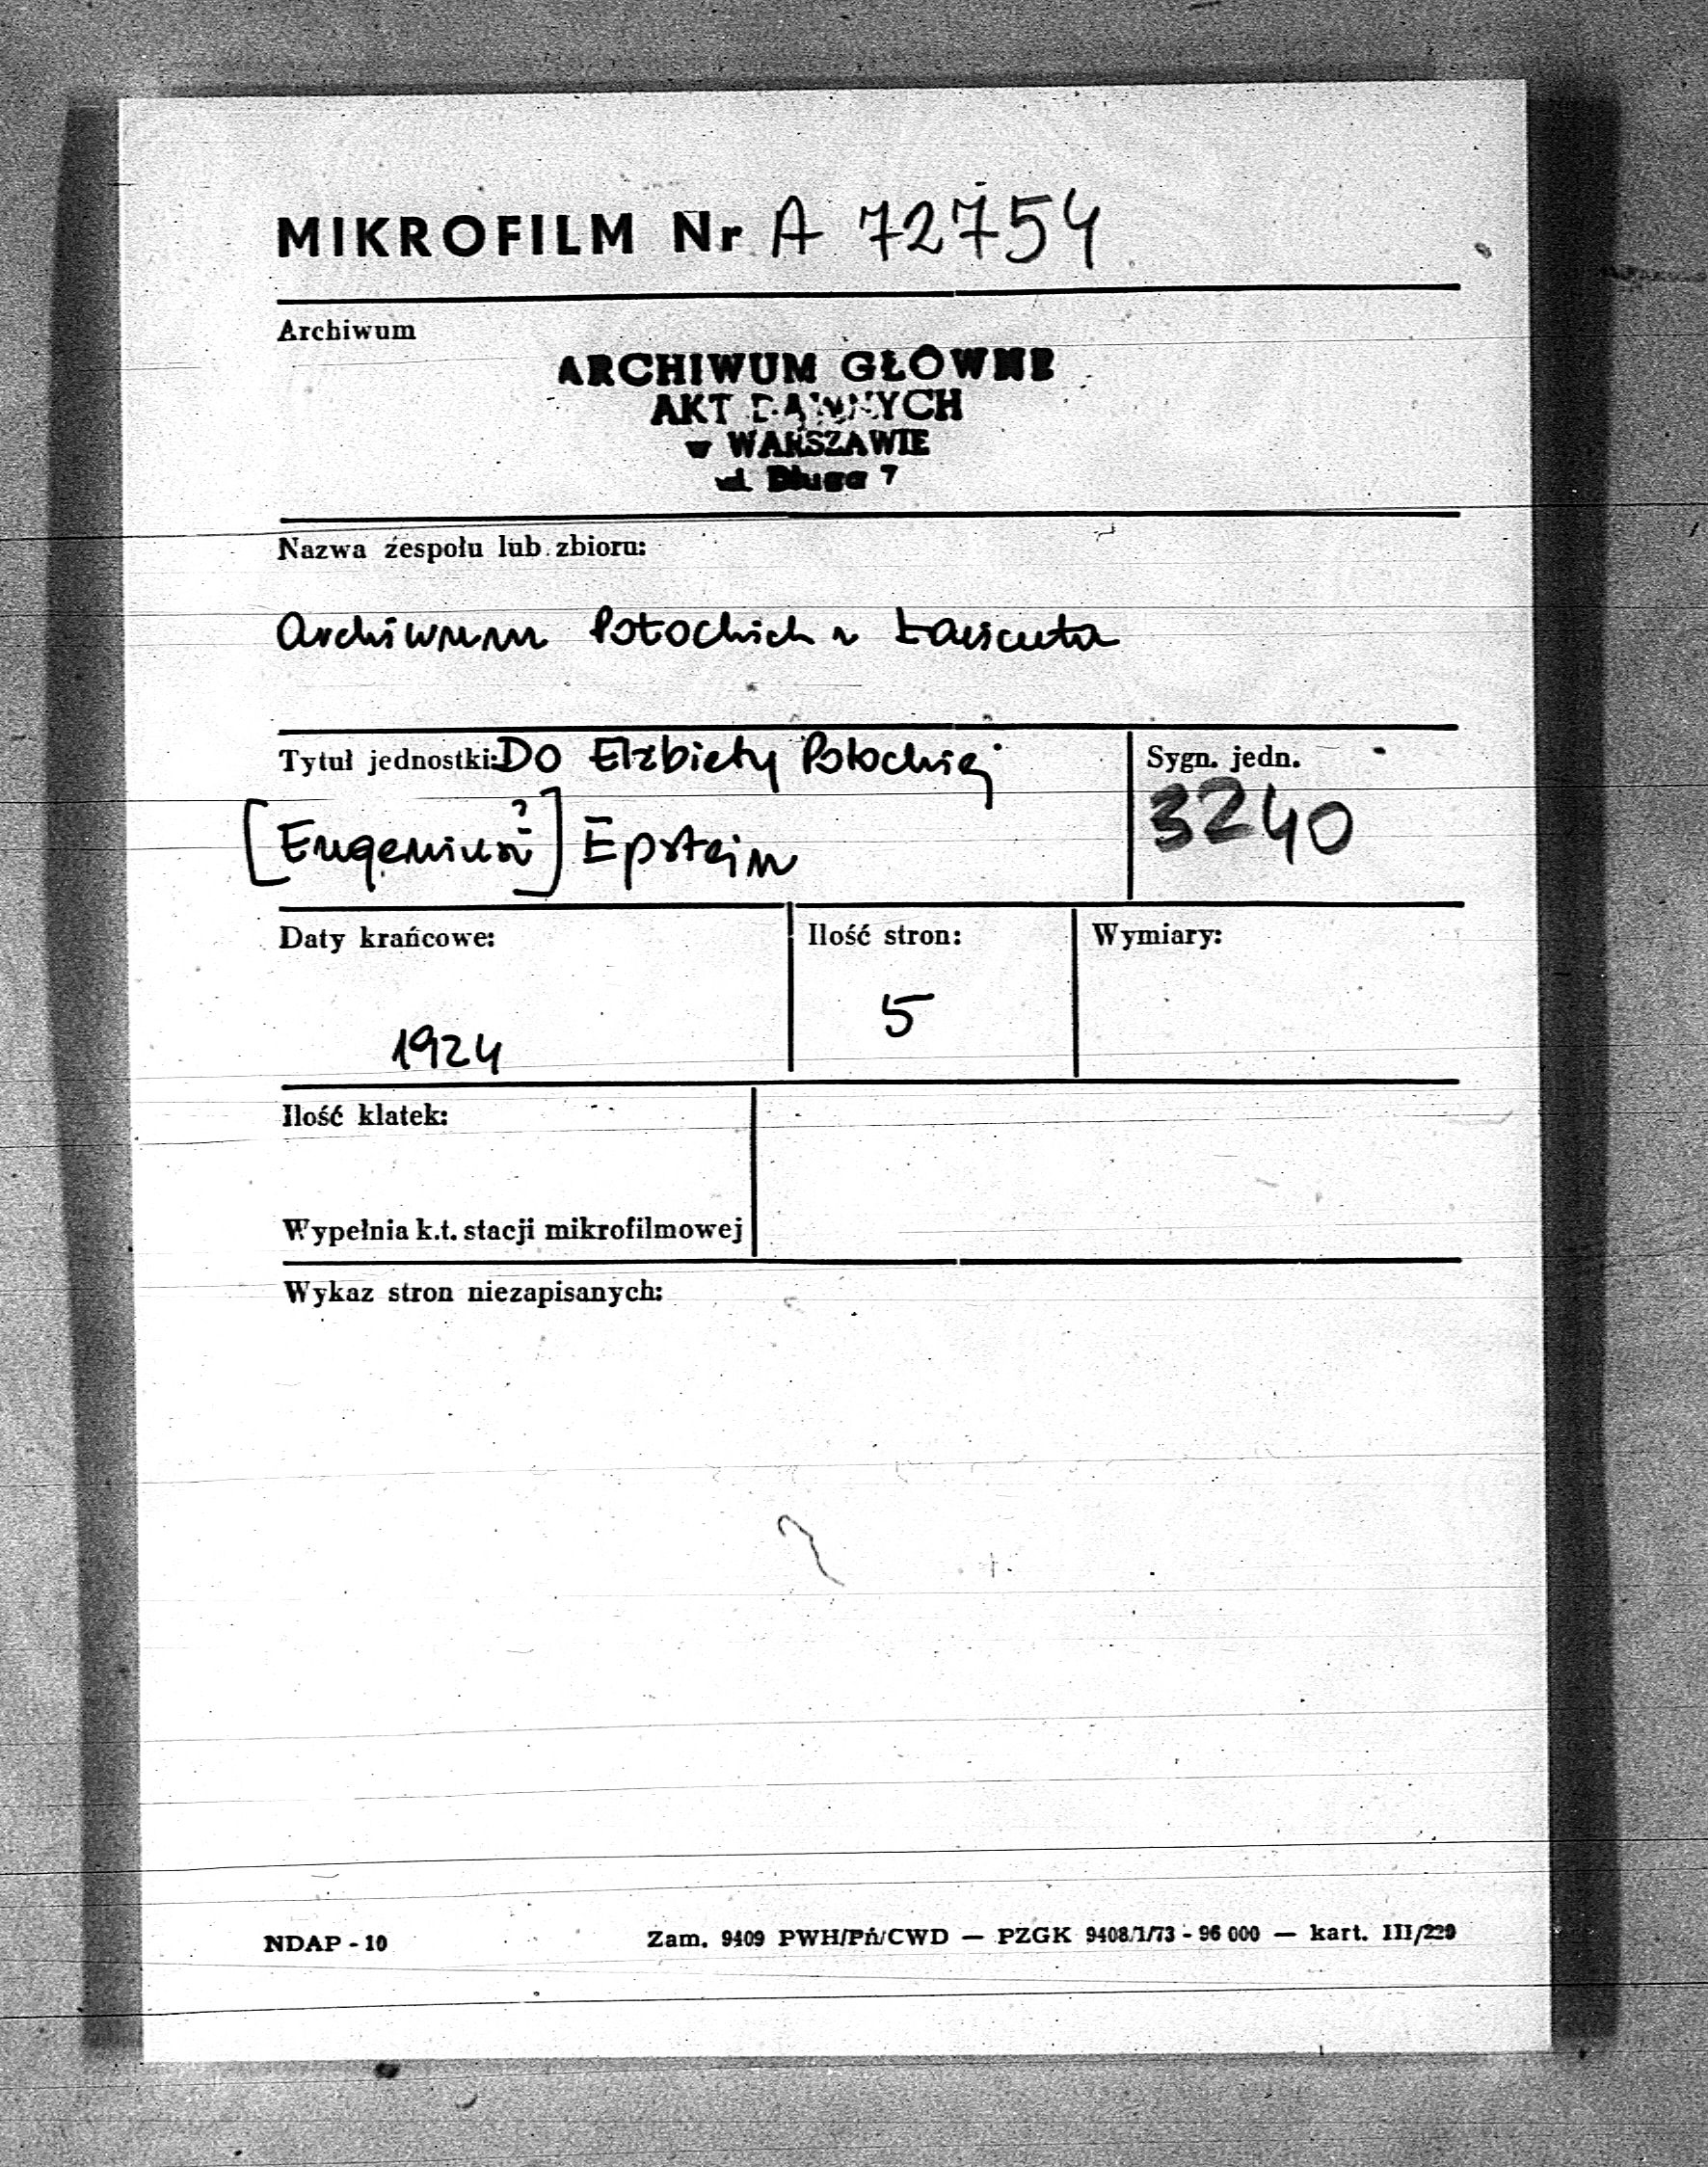 MIKROFILM Nr A 72754
Archiwum
ARCHIWUM GŁÓWNE
AKT DAWNYCH
w WARSZAWIE
ul. Długa 7
Nazwa zespołu lub zbioru:
Archiwum Potockich z Łańcuta
Tytuł jednostki: Do Elżbiety Potockiej
[Eugeniusz?] Epstein
Sygn. jedn.
3240
Daty krańcowe:
1924
Ilość stron:
5
Wymiary:
Ilość klatek:
Wypełnia k.t. stacji mikrofilmowej
Wykaz stron niezapisanych:
NDAP - 10
Zam. 9409 PWH/Pń/CWD — PZGK 9408/1/73 - 96 000 — kart. III/229